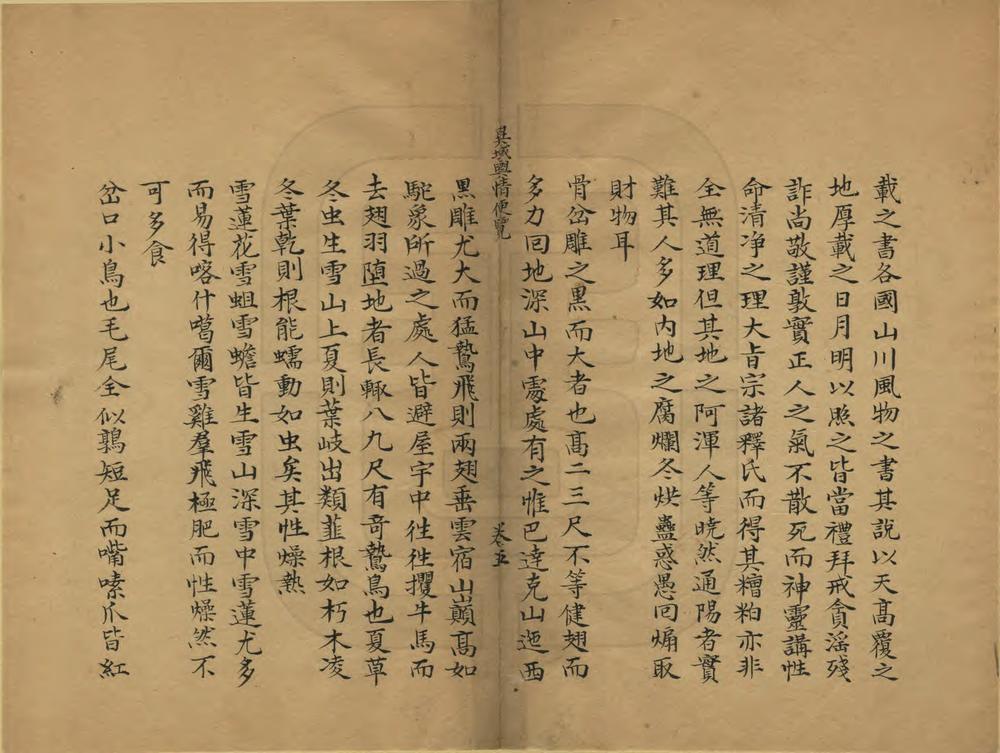 載之書各國山川風物之書其說以天高覆之
地厚載之日月明以照之皆當禮拜戒貪滛殘
詐尚敬謹敦實正人之氣不散死而神靈講性
命清净之理大㫖宗諸釋氏而得其糟粕亦非
全無道理但其地之阿渾人等曉然通陽者實
難其人多如内地之腐爛冬烘蠱惑愚回煽取
財物耳
骨岔雕之黑而大者也高二三尺不等健翅而
多力回地深山中處處有之惟巴達克山迤西
異域輿情便覽 卷五
黑雕尤大而猛鷙飛則兩翅垂雲宿山巔高如
駝象所過之處人皆避屋宇中徃徃攫牛馬而
去翅羽墮地者長輙八九尺有竒鷙鳥也夏草
冬虫生雪山上夏則葉岐出類韮根如朽木凌
冬葉乾則根能蠕動如虫矣其性燥熱
雪蓮花雪蛆雪蟾皆生雪山深雪中雪蓮尤多
而易得喀什噶爾雪雞羣飛極肥而性燥然不
可多食
岔口小鳥也毛尾全似鶉短足而嘴嗉爪皆紅